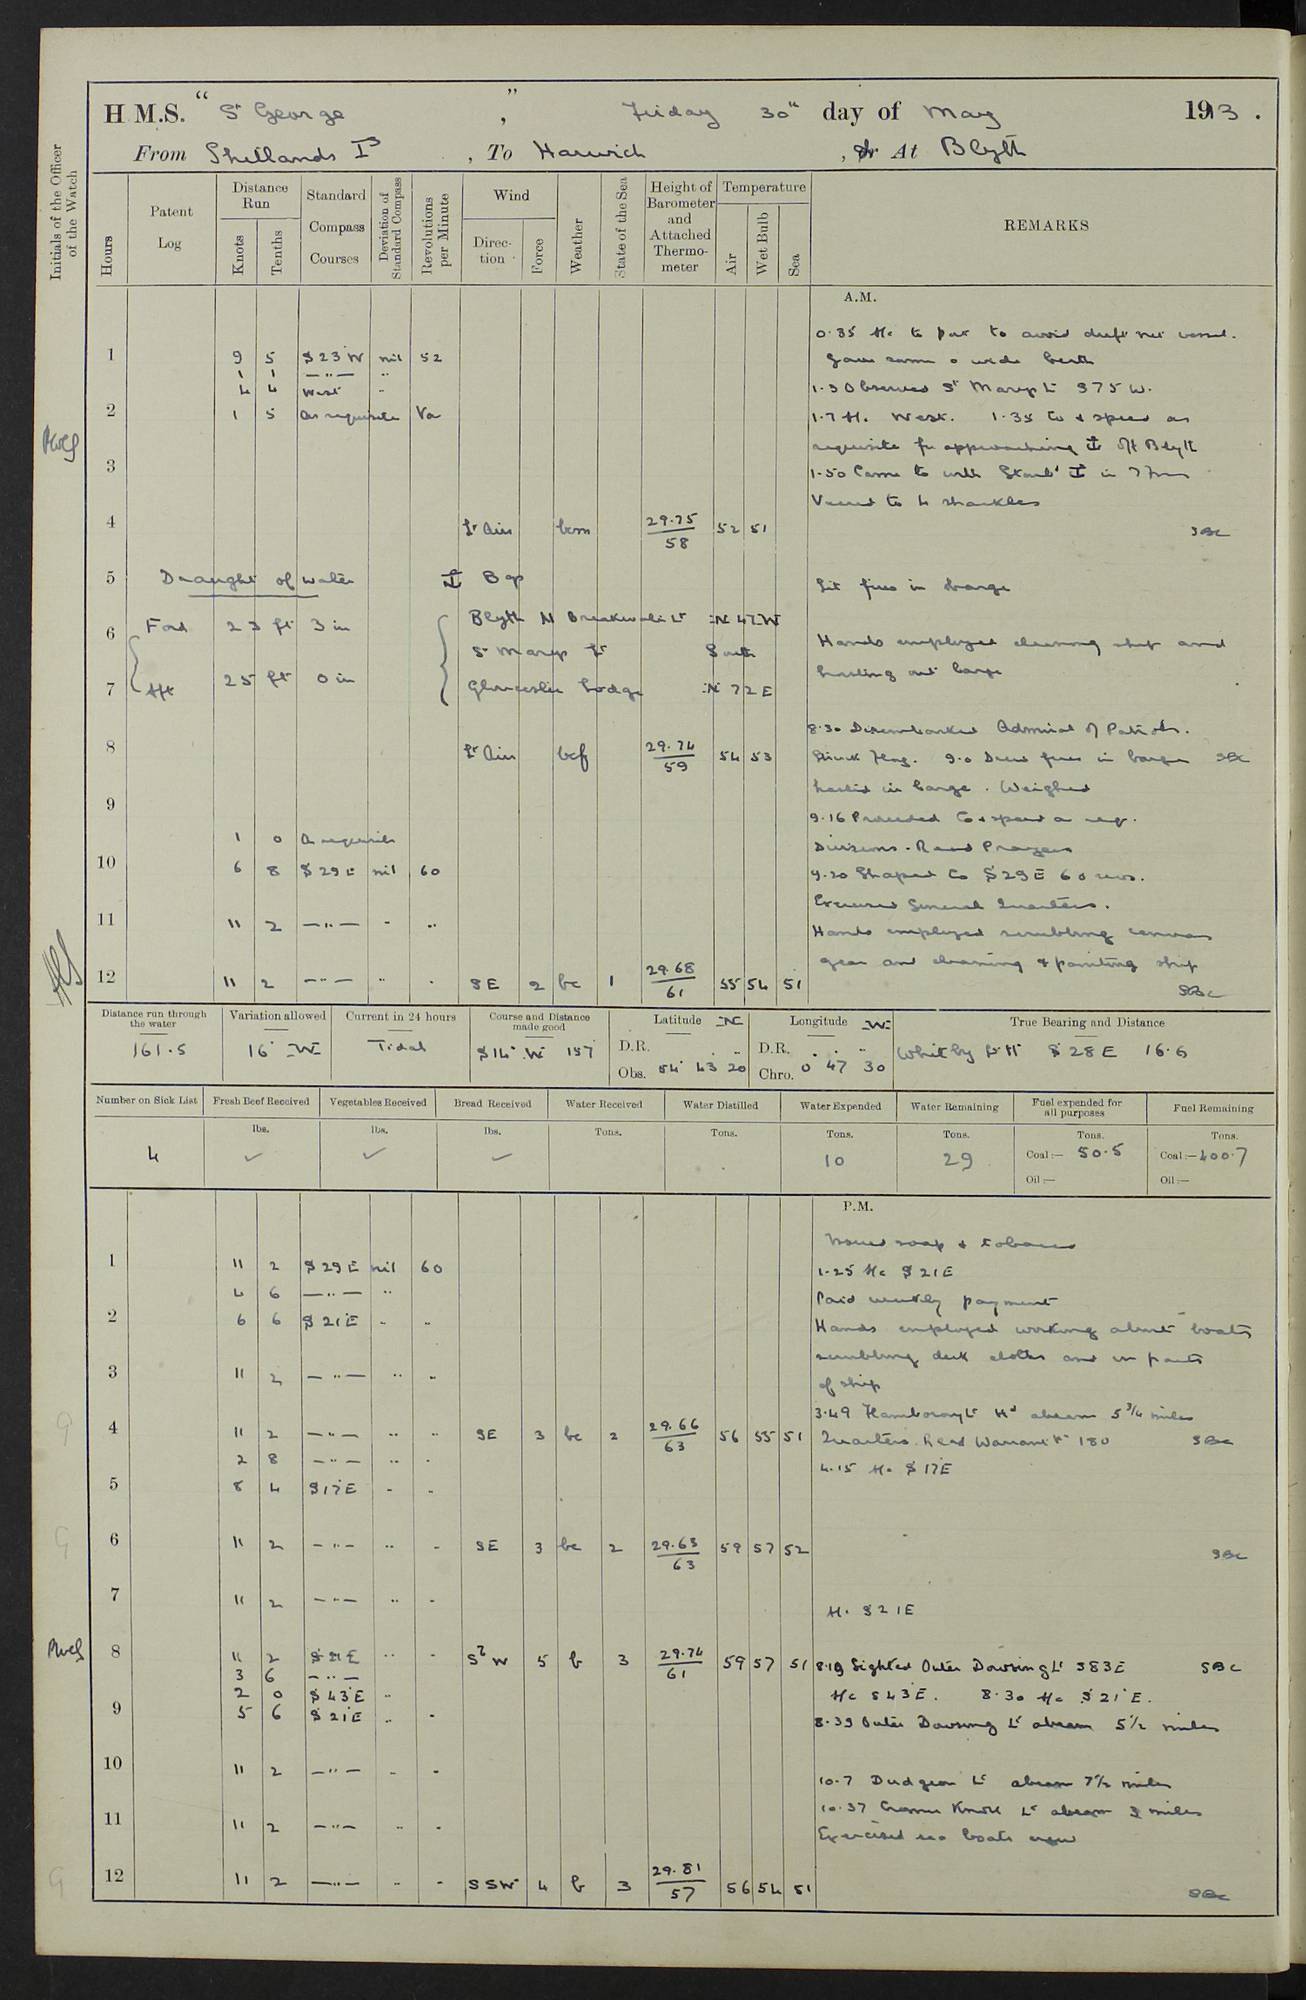 H.M.S. "St George", Friday 30th day of May 1913.
From Shetlands Is, To Harwich, or At Blyth
Initials of the Officer of the Watch
Hours
Patent Log
Distance Run
Knots
Tenths
Standard Compass Courses
Deviation of Standard Compass
Revolutions per Minute
Wind
Direction
Force
Weather
State of the Sea
Height of Barometer and Attached Thermometer
Temperature
Air
Wet Bulb
Sea
REMARKS
A.M.
0.35 Ac to port to avoid drift net vessel.
1 9 5 S 23 W nil 52
gave same a wide berth
1 1 —"— "
4 4 West "
1.3 Observed St Marys Lt S 75 W.
2 1 5 As requisite Va
1.7 Ac West. 1.35 Co & speed as
requisite for approaching ⚓ off Blyth
3
1.50 Came to with Starbd ⚓ in 7 fms
Veered to 4 shackles
4 Lt Airs bcm 29.75 / 58 52 51 SBC
5 Draught of water ⚓ Bgs
Lit fires in barge
Ford 23 ft 3 in
Blyth N Breakwater Lt N 47 W
6
St Marys Lt South
Hands employed cleaning ship and
hoisting out barge
7 Aft 25 ft 0 in
Gloucester Lodge N 72 E
8.30 Disembarked Admiral of Patrols.
8 Lt Airs bcf 29.74 / 59 54 53
Struck Flag. 9.0 Drew fires in barge SBC
hoisted in barge. Weighed
9
9.16 Proceeded Co & speed as req.
1 0 As requisite
Divisions. Read Prayers
10 6 8 S 29 E nil 60
9.20 Shaped Co S 29 E 60 revs.
Exercised General Quarters.
11 11 2 —"— " "
Hands employed scrubbing canvas
gear and cleaning & painting ship
12 11 2 —"— " " SE 2 bc 1 29.68 / 61 55 54 51
SBC
Distance run through the water
161.5
Variation allowed
16° W
Current in 24 hours
Tidal
Course and Distance made good
S 14° W 157
Latitude N
D.R.
Obs. 54 43 20
Longitude W
D.R.
Chro. 0 47 30
True Bearing and Distance
Whitby Lt H S 28 E 16.6
Number on Sick List
4
Fresh Beef Received
lbs.
✓
Vegetables Received
lbs.
✓
Bread Received
lbs.
✓
Water Received
Tons.
Water Distilled
Tons.
Water Expended
Tons.
10
Water Remaining
Tons.
29
Fuel expended for all purposes
Tons.
Coal:— 50.5
Oil:—
Fuel Remaining
Tons.
Coal:— 400.7
Oil:—
P.M.
Issued soap & tobacco
1 11 2 S 29 E nil 60
1.25 Ac S 21 E
4 6 —"— "
Paid weekly payment
2 6 6 S 21 E " "
Hands employed working about boats
scrubbing deck cloths and in parts
3 11 2 —"— " "
of ship
3.49 Flamboro Lt Hd abeam 5 3/4 miles
4 11 2 —"— " " SE 3 bc 2 29.66 / 63 56 55 51
Quarters. Read Warrant No 180 SBC
2 8 —"— " "
4.15 Ac S 17 E
5 8 4 S 17 E " "
6 11 2 —"— " " SE 3 bc 2 29.63 / 63 59 57 52
SBC
7 11 2 —"— " "
Ac S 21 E
8 11 2 S 21 E " " S by W 5 b 3 29.74 / 61 59 57 51
8.19 Sighted Outer Dowsing Lt S 83 E SBC
3 6 —"—
2 0 S 43 E "
Ac S 43 E. 8.30 Ac S 21 E.
9 5 6 S 21 E " "
8.39 Outer Dowsing Lt abeam 5 1/2 miles
10 11 2 —"— " "
10.7 Dudgeon Lt abeam 7 1/2 miles
10.37 Cromer Knoll Lt abeam 3 miles
11 11 2 —"— " "
Exercised sea boats crew
12 11 2 —"— " " SSW 4 b 3 29.81 / 57 56 54 51
SBC